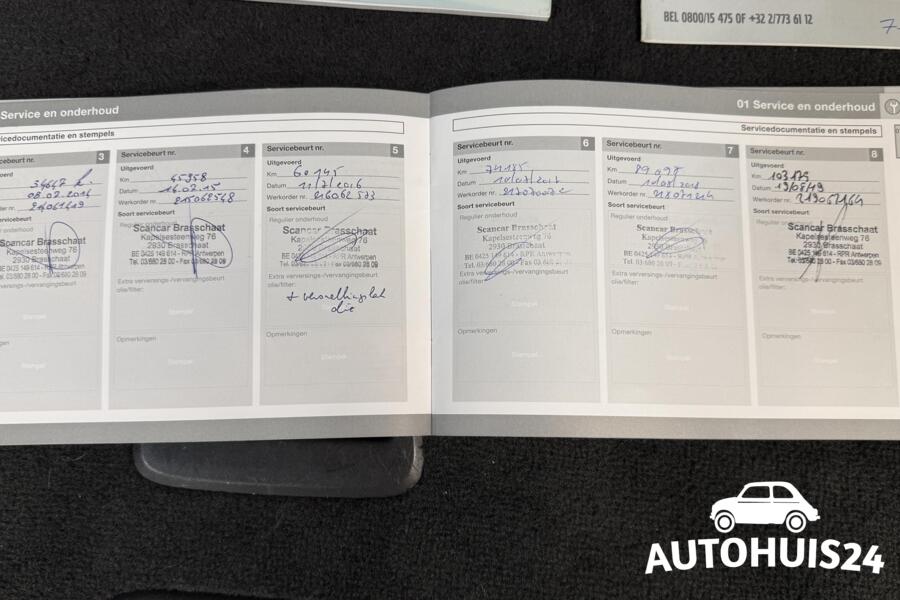 BEL 0800/15 475 OF +32 2/773 61 12
Service en onderhoud
01 Service en onderhoud
Servicedocumentatie en stempels
3
08.02.2014
Scancar Brasschaat
Kapelsesteenweg 76
2930 Brasschaat
BE 0425 149 614 - RPR Antwerpen
Tel. 03/680 28 00 - Fax 03/680 28 09
Stempel
Servicebeurt nr. 4
Uitgevoerd
Km 45358
Datum 16.02.15
Werkorder nr.
Soort servicebeurt
Regulier onderhoud
Scancar Brasschaat
Kapelsesteenweg 76
2930 Brasschaat
BE 0425 149 614 - RPR Antwerpen
Tel. 03/680 28 00 - Fax 03/680 28 09
Extra verversings-/vervangingsbeurt
olie/filter:
Stempel
Opmerkingen
Stempel
Servicebeurt nr. 5
Uitgevoerd
Km 60145
Datum 11/7/2016
Werkorder nr.
Soort servicebeurt
Regulier onderhoud
Scancar Brasschaat
Kapelsesteenweg 76
2930 Brasschaat
BE 0425 149 614 - RPR Antwerpen
Tel. 03/680 28 00 - Fax 03/680 28 09
Extra verversings-/vervangingsbeurt
olie/filter:
+ versnellingsbak
olie
Opmerkingen
Stempel
Servicedocumentatie en stempels
Servicebeurt nr. 6
Uitgevoerd
Km 74185
Datum 10/07/2017
Werkorder nr.
Soort servicebeurt
Regulier onderhoud
Scancar Brasschaat
Kapelsesteenweg 76
2930 Brasschaat
BE 0425 149 614 - RPR Antwerpen
Extra verversings-/vervangingsbeurt
olie/filter:
Stempel
Opmerkingen
Stempel
Servicebeurt nr. 7
Uitgevoerd
Km
Datum
Werkorder nr.
Soort servicebeurt
Regulier onderhoud
Scancar Brasschaat
Kapelsesteenweg 76
2930 Brasschaat
Extra verversings-/vervangingsbeurt
olie/filter:
Stempel
Opmerkingen
Stempel
Servicebeurt nr. 8
Uitgevoerd
Km 103175
Datum
Werkorder nr.
Soort servicebeurt
Regulier onderhoud
Scancar Brasschaat
Kapelsesteenweg 76
2930 Brasschaat
BE 0425 149 614 - RPR Antwerpen
Tel. 03/680 28 00 - Fax 03/680 28 09
Extra verversings-/vervangingsbeurt
olie/filter:
Stempel
Opmerkingen
Stempel
AUTOHUIS24